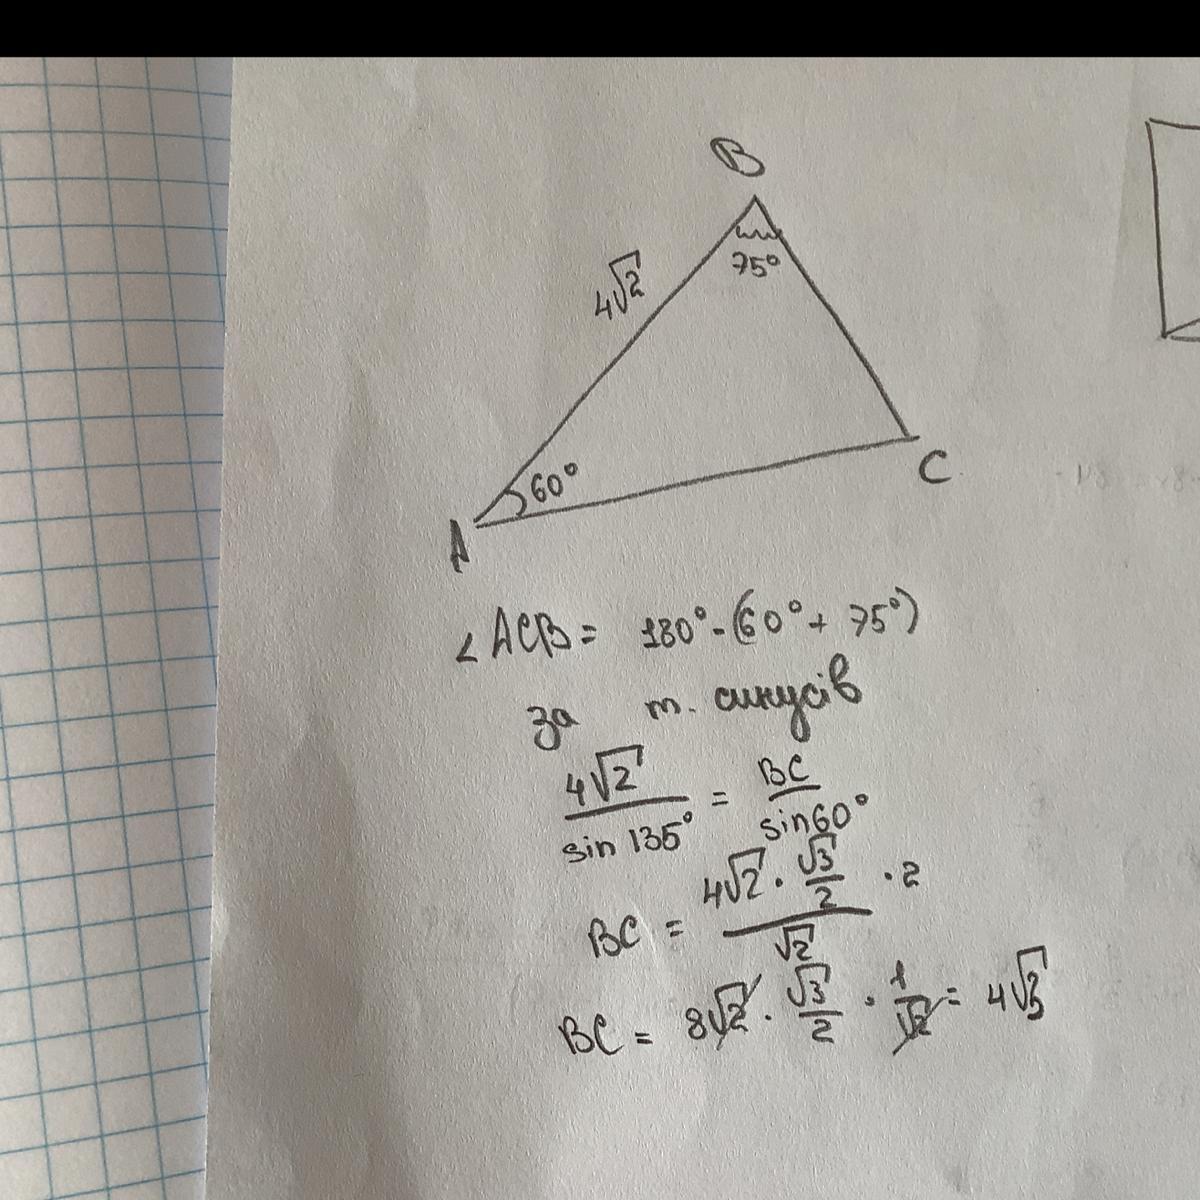 B
4√2
75°
60°
C
A
∠ACB = 180° - (60° + 75°)
за т. синусів
4√2 / sin 135° = BC / sin 60°
BC = (4√2 · √3/2) / √2 · 2
BC = 8√2 · √3/2 · 1/√2 = 4√3